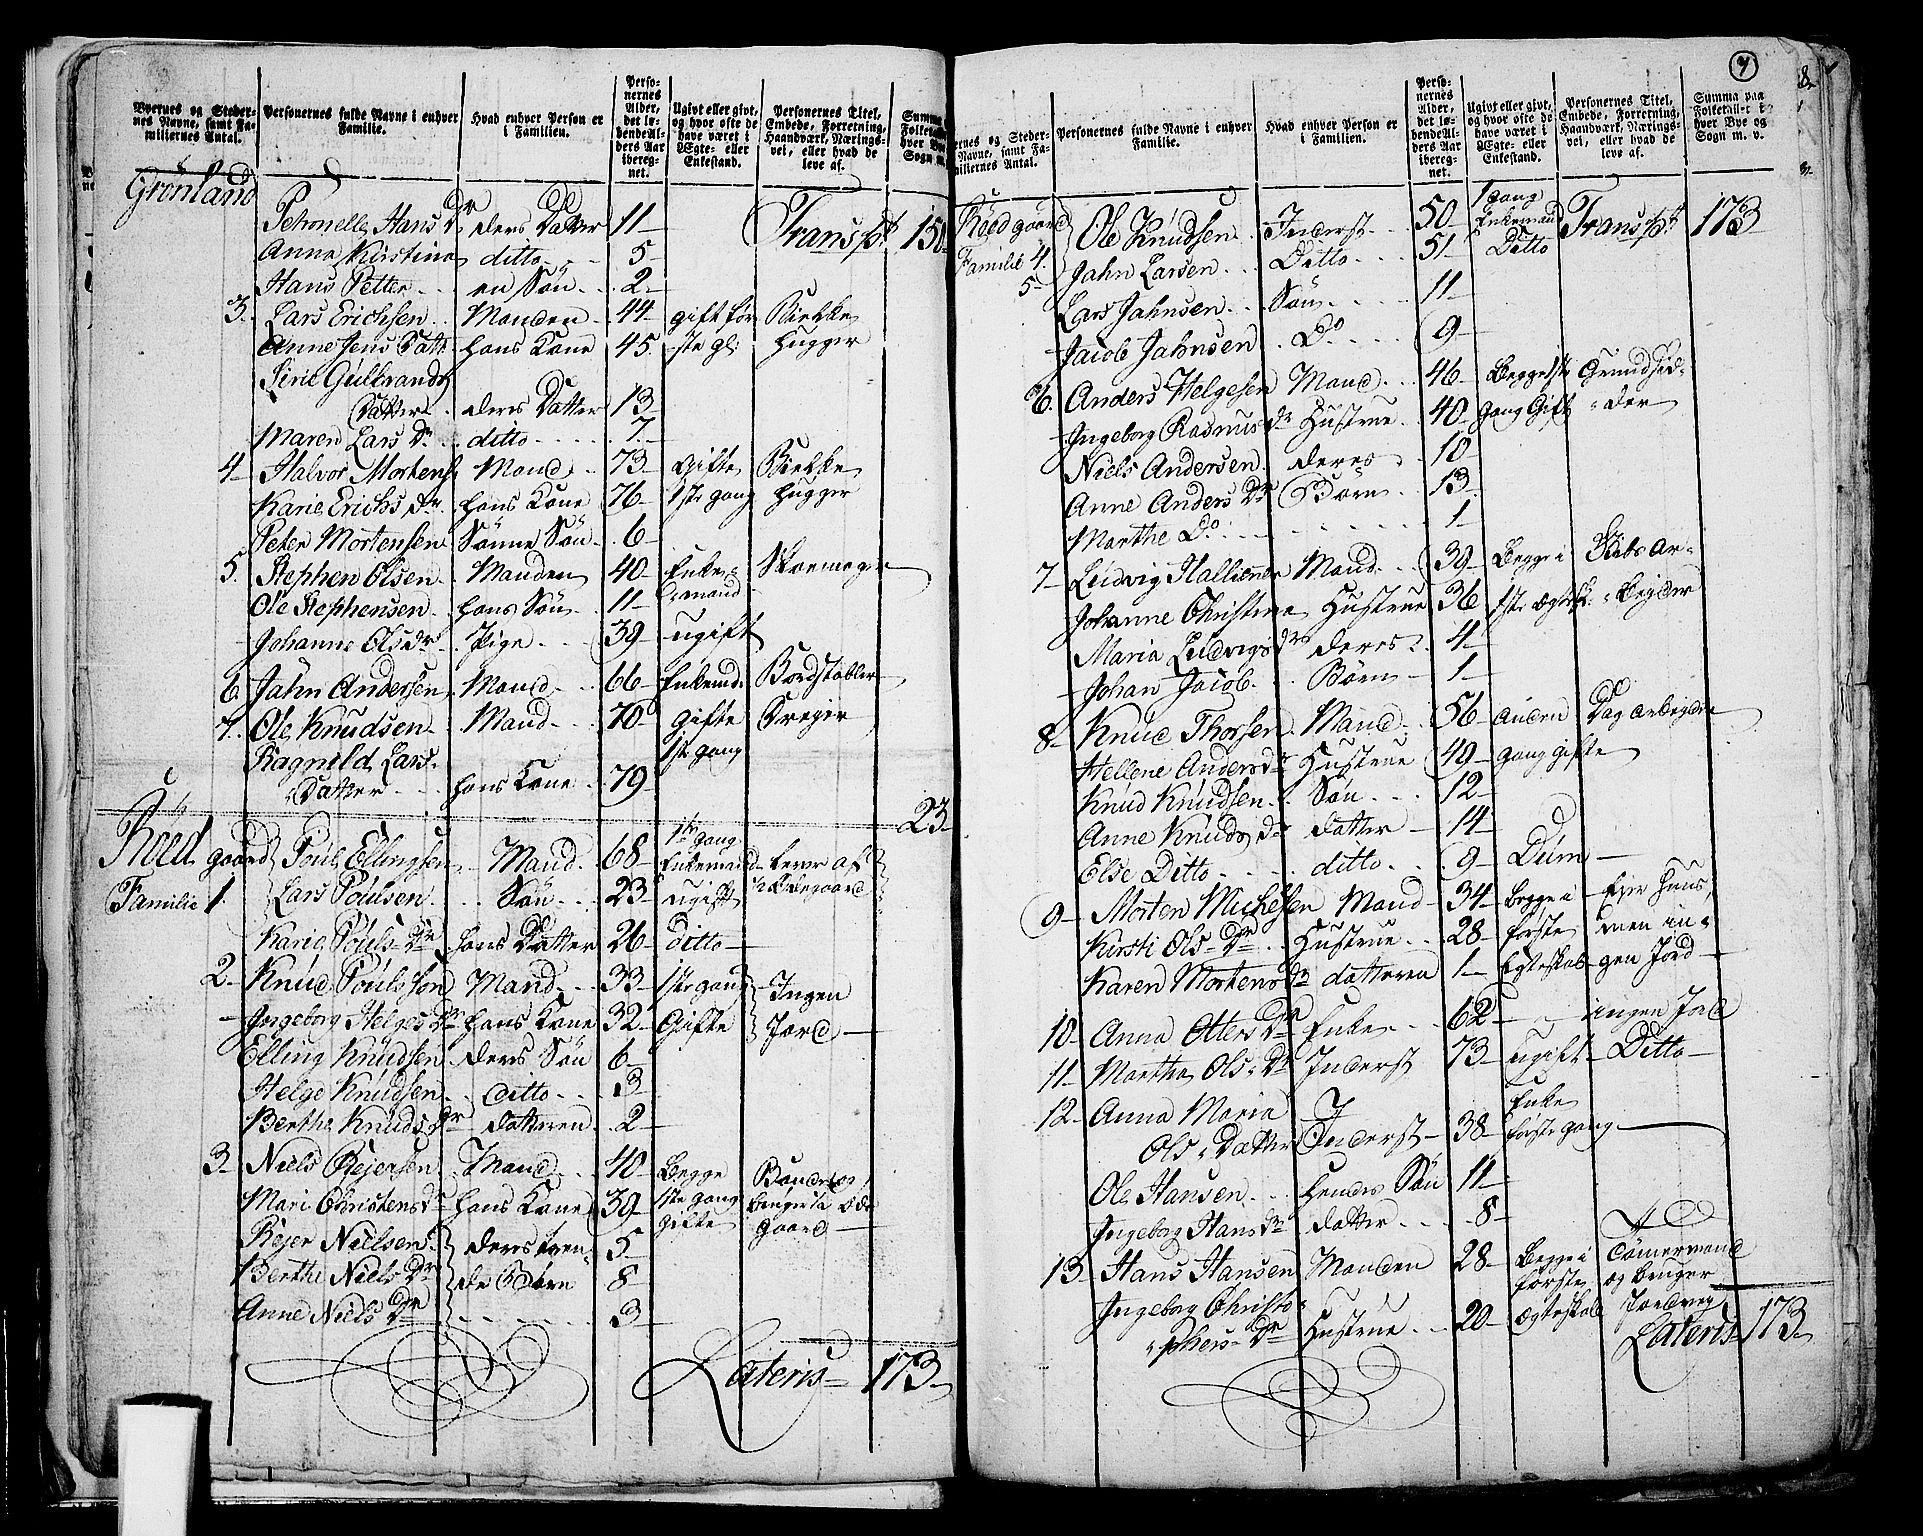 Byernes og Steder-
nes Navne, samt Fa-
miliernes Antal.
Personernes fulde Navne i enhver
Familie.
Hvad enhver Person er
i Familien.
Perso-
nernes
Alder,
det lø-
bende Al-
ders Aar
ibereg-
net.
Ugivt eller givt,
og hvor ofte de
have været i
Ægte- eller
Enkestand.
Personernes Titel,
Embede, Forretning,
Haandværk, Nærings-
vei, eller hvad de
leve af.
Summa
Folketal
hver Bye
Sogn m.
Grønland
Petronelle Hans Dr deres Datter 11 Transpt 150
Anna Kirstina ditto 5
Hans Petter en Søn 2
3. Lars Erichsen Manden 44 gift før Biekke
Anne Jens Datt hans Kone 45 ste g: Hugger
Siri Gulbrands
Datter deres Datter 13
Maren Lars Dr ditto 7
4 Halvor Mortens Mand 73 gifte Biekke
Karie Erichs Dr hans Kone 76 1ste gang Hugger
Peter Mortensen Sønne Søn 6
5. Stephen Olsen Manden 40 Enke-
mand Skoemager
Ole Stephensen hans Søn 11
Johanne Ols Dr Pige 39 ugift
6 Jahn Andersen Mand 66 Enkemd. Bordstabler
7. Ole Knudsen Mand 70 gifte
1ste gang
Ragnild Lars
Datter hans Kone 79
23
Röed gaard Poul Ellingsen Mand 68 1te gang
Enkemand lever af
Familie 1. Lars Poulsen Søn 23 ugift 1/2 Ødegaard
Karie Pouls Dr hans Datter 26 ditto
2 Knud Poulsson Mand 33 1ste gang Ingen
Ingeborg Helges Dr hans Kone 32 Gifte Jord
Elling Knudsen deres Søn 6
Helge Knudsen ditto 3
Berthe Knuds Dr datteren 2
3 Niels Rejersen Mand 40 Begge
Mari Christens Dr hans Kone 39 1ste gang
gifte
gaard
Rejer Nielsen deres 5
Berthe Niels Dr de Børn 8
Anne Niels Dr 3
Lateris 173
7
8
ernes og Steder-
Navne, samt Fa-
miliernes Antal.
Personernes fulde Navne i enhver
Familie.
Hvad enhver Person er
i Familien.
Perso-
nernes
Alder,
det lø-
bende Al-
ders Aar
ibereg-
net.
Ugivt eller givt,
og hvor ofte de
have været i
Ægte- eller
Enkestand.
Personernes Titel,
Embede, Forretning,
Haandværk, Nærings-
vei, eller hvad de
leve af.
Summa paa
Folketallet i
hver Bye og
Sogn m. v.
Röed gaard Ole Knudsen Inderst 50 1 gang
Enkemand Transpt 173
Familie 4. Jahn Larsen Ditto 51 Ditto
5 Lars Jahnsen Søn 11
Jacob Jahnsen Do 9
6. Anders Helgesen Mand 46 Begge 1ste Grundsid-
Ingeborg Rasmus dr Hustrue 40 Gang Gift der
Niels Andersen deres 10
Anne Anders Dr Børn 13
Marthe Do 1
7 Ludvig Mand 39 Begge i Skibs Ar-
Johanne Christina Hustrue 36 1ste Ægtesk. beigder
Maria Ludvigs dr deres 4
Johan Jacob Børn 1
8 Knud Thorsen Mand 56 anden Dag arbejder
Hellene Anders dr Hustrue 49 gang gifte
Knud Knudsen Søn 12
Anne Knuds Dr datter 14
Else Ditto ditto 9 Dum
9 Morten Michelsen Mand 34 begge i Ejer Huus,
Kirsti Ols Dr Hustrue 28 første men in-
Karen Mortens Dr datteren 1 Egteskab gen Jord
10 Anna Otters Dr Enke 62 ingen Jord
11 Martha Ols Dr Inderst 73 ugift Ditto
12 Anna Maria
Ols Datter Inderst 38 Enke
første gang
Ole Hansen hendes Søn 11
Ingeborg Hans dr datter 8
13 Hans Hansen Manden 28 Begge i
første Tømermand
og bruger
Ingeborg Christo-
phers Dr Hustrue 20 ægteskab Jordvej
Lateris 173